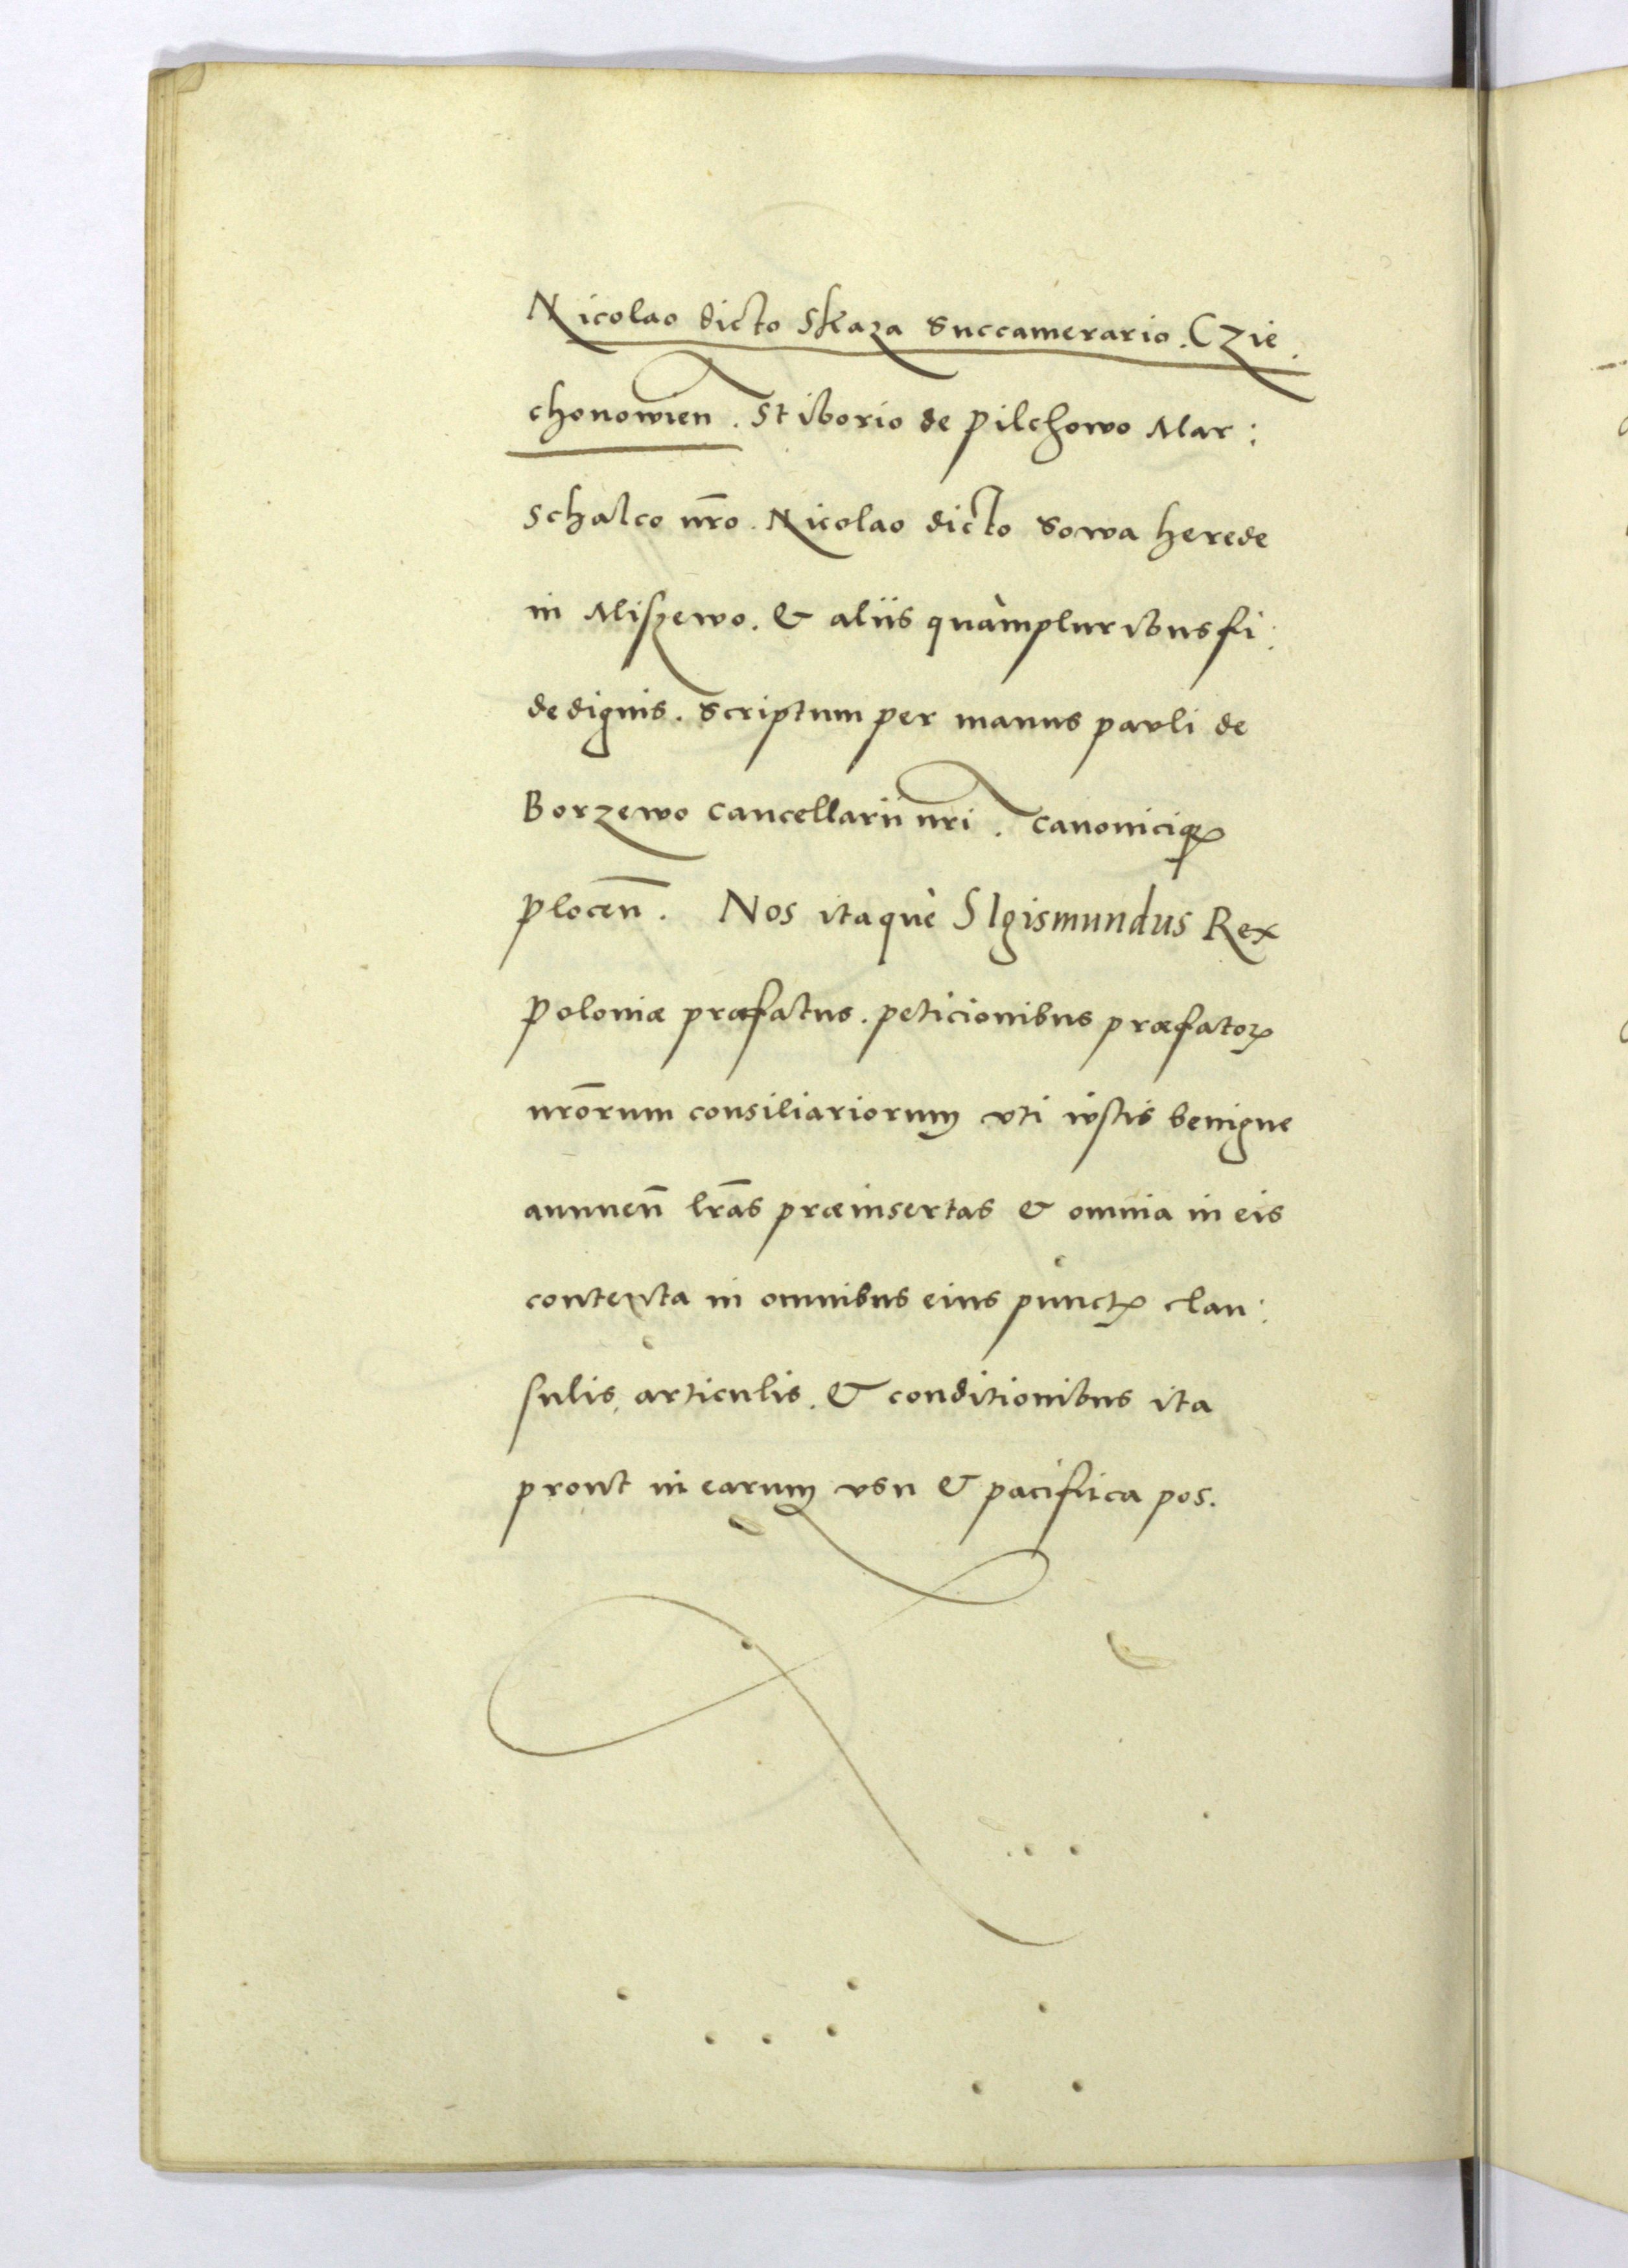 Nicolao dicto Skaza Succamerario. Czie.
chonowien̄. Stiborio de Pilchowo Mar:
schalco nr̄o. Nicolao dicto Sowa herede
in Miszewo. & aliis quàmpluribus fi:
dedignis. Scriptum per manus pauli de
Borzewo Cancellarii nr̄i. Canoniciqꝫ
plocen̄. Nos itaque SIgismundus Rex
Poloniæ præfatus. peticionibus præfatoꝝ
nr̄orum consiliariorum vti iustis benigne
annuen̄ lr̄as præinsertas & omnia in eis
contenta in omnibus eius punctꝭ clau:
sulis, articulis. & conditionibus ita
prout in earum vsu & pacifica pos.